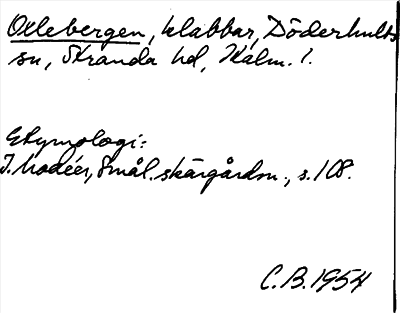 Oxlebergen, klabbar, Döderhults
sn, Stranda hd, Kalm. l.
Etymologi:
I. Modéer, Smål. skärgårdsn., s. 108.
C.B. 1954